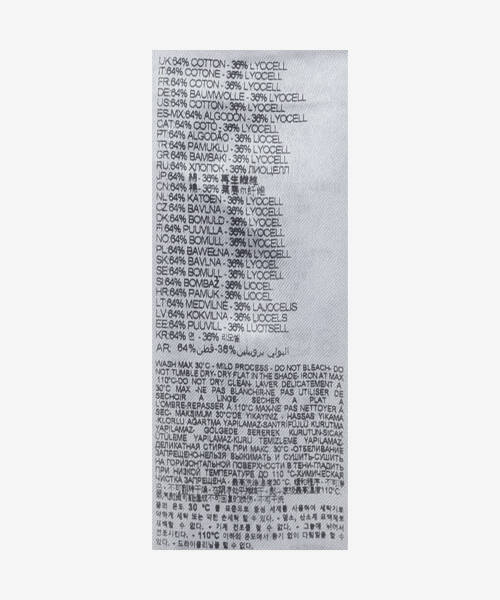 UK:64% COTTON - 36% LYOCELL
IT:64% COTONE - 36% LYOCELL
FR:64% COTON - 36% LYOCELL
DE:64% BAUMWOLLE - 36% LYOCELL
US:64% COTTON - 36% LYOCELL
ES-MX:64% ALGODÓN - 36% LYOCELL
CAT:64% COTÓ - 36% LYOCELL
PT:64% ALGODÃO - 36% LIOCEL
TR:64% PAMUKLU - 36% LYOCELL
GR:64% BAMBAKI - 36% LYOCELL
RU:64% ХЛОПОК - 36% ЛИОЦЕЛЛ
JP:64% 綿 - 36% 再生繊維
CN:64% 棉 - 36% 莱赛尔纤维
NL:64% KATOEN - 36% LYOCELL
CZ:64% BAVLNA - 36% LYOCELL
DK:64% BOMULD - 36% LYOCELL
FI:64% PUUVILLA - 36% LYOCELL
NO:64% BOMULL - 36% LYOCELL
PL:64% BAWEŁNA - 36% LYOCELL
SK:64% BAVLNA - 36% LYOCEL
SE:64% BOMULL - 36% LYOCELL
SI:64% BOMBAŽ - 36% LIOCEL
HR:64% PAMUK - 36% LIOCEL
LT:64% MEDVILNĖ - 36% LAJOCELIS
LV:64% KOKVILNA - 36% LIOCELS
EE:64% PUUVILL - 36% LÜOTSELL
KR:64% 면 - 36% 리오셀
AR: 64% قطن-36%
WASH MAX 30°C - MILD PROCESS - DO NOT BLEACH- DO
NOT TUMBLE DRY- DRY FLAT IN THE SHADE- IRON AT MAX
110°C-DO NOT DRY CLEAN- LAVER DELICATEMENT A
30°C MAX -NE PAS BLANCHIR-NE PAS UTILISER DE
SECHOIR A LINGE- SECHER A PLAT A
L'OMBRE-REPASSER A 110°C MAX-NE PAS NETTOYER A
SEC- MAKSIMUM 30°C'DE YIKAYINIZ - HASSAS YIKAMA
-KLORLU AĞARTMA YAPILAMAZ-SANTRİFÜJLÜ KURUTMA
YAPILAMAZ- GÖLGEDE SEREREK KURUTUN-SICAK
ÜTÜLEME YAPILAMAZ-KURU TEMİZLEME YAPILAMAZ-
ДЕЛИКАТНАЯ СТИРКА ПРИ МАКС 30°C -ОТБЕЛИВАНИЕ
ЗАПРЕЩЕНО-НЕЛЬЗЯ ВЫЖИМАТЬ И СУШИТЬ-СУШИТЬ
НА ГОРИЗОНТАЛЬНОЙ ПОВЕРХНОСТИ В ТЕНИ-ГЛАДИТЬ
ПРИ НИЗКОЙ ТЕМПЕРАТУРЕ ДО 110 °C-ХИМИЧЕСКАЯ
ЧИСТКА ЗАПРЕЩЕНА-
물의 온도 30 °C 를 표준으로 중성 세제를 사용하여 세탁기로
약하게 세탁 또는 약한 손세탁 할 수 있다. - 염소, 산소계 표백제로
표백할 수 없다. - 그늘에 뉘어서
건조시킨다. - 110°C
- 드라이클리닝을 할 수 없다.